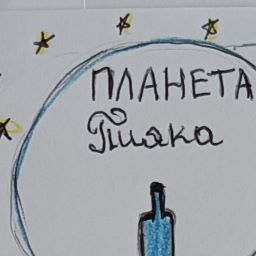 ПЛАНЕТА
Пияка